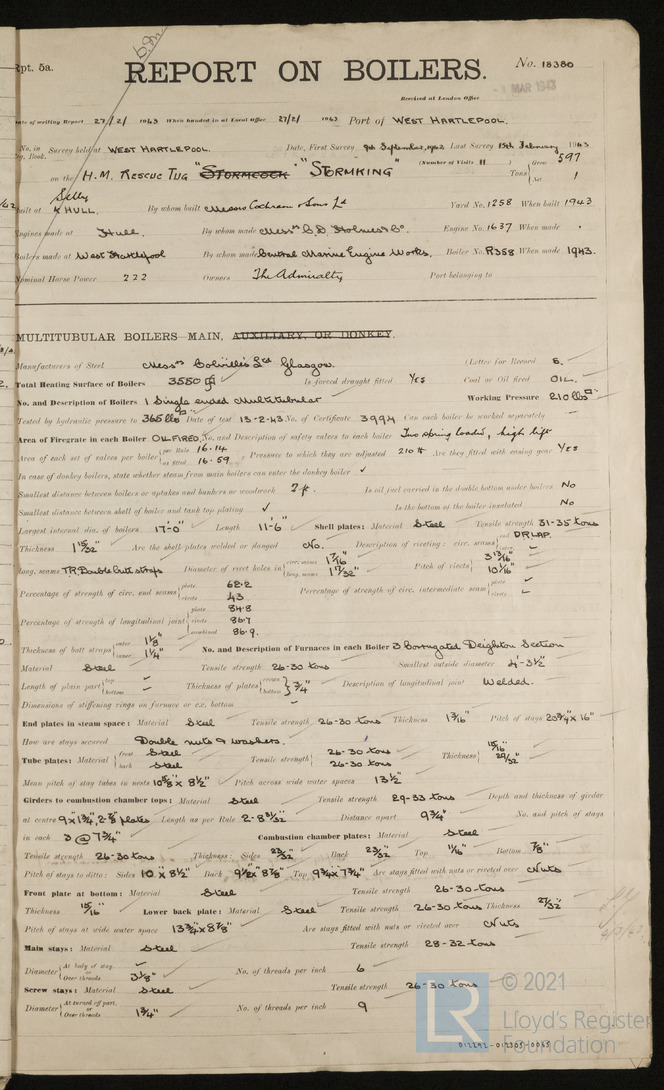 Rpt. 5a.
REPORT ON BOILERS.
No. 18380
Received at London Office
MAR 1943
Date of writing Report 27/2/ 1943 When handed in at Local Office 27/2/ 1943 Port of WEST HARTLEPOOL.
No. in Reg. Book. Survey held at WEST HARTLEPOOL. Date, First Survey 9th September, 1942 Last Survey 15th February 1943
(Number of Visits 11 )
on the H.M. RESCUE TUG "STORMCOCK" "STORMKING" Tons Gross 597 Net 1
Built at Selby & HULL. By whom built Messrs Cochrane & Sons Ld Yard No. 1258 When built 1943
Engines made at Hull. By whom made Messrs C.D. Holmes & Co. Engine No. 1637 When made
Boilers made at West Hartlepool By whom made Central Marine Engine Works. Boiler No. R358 When made 1943.
Nominal Horse Power 222 Owners The Admiralty Port belonging to
MULTITUBULAR BOILERS MAIN, AUXILIARY, OR DONKEY.
Manufacturers of Steel Messrs Colville's Ld Glasgow. (Letter for Record S.
Total Heating Surface of Boilers 3550 Is forced draught fitted YES Coal or Oil fired OIL.
No. and Description of Boilers 1 Single ended Multitubular Working Pressure 210 lbs
Tested by hydraulic pressure to 365 lbs Date of test 13-2-43 No. of Certificate 3994 Can each boiler be worked separately –
Area of Firegrate in each Boiler OIL FIRED No. and Description of safety valves to each boiler Two spring loaded, high lift
Area of each set of valves per boiler per Rule 16.14 as fitted 16.59 Pressure to which they are adjusted 210 # Are they fitted with easing gear YES
In case of donkey boilers, state whether steam from main boilers can enter the donkey boiler ✓
Smallest distance between boilers or uptakes and bunkers or woodwork 2 ft. Is oil fuel carried in the double bottom under boilers No
Smallest distance between shell of boiler and tank top plating ✓ Is the bottom of the boiler insulated No
Largest internal dia. of boilers 17'-0" Length 11'-6" Shell plates: Material Steel Tensile strength 31-35 tons
Thickness 1 15/32" Are the shell plates welded or flanged No. Description of riveting: circ. seams end DR LAP. inter. –
long. seams TR. Double butt straps Diameter of rivet holes in circ. seams 1 7/16" long. seams 1 17/32" Pitch of rivets 3 13/16" 10 1/16"
Percentage of strength of circ. end seams plate 62.2 rivets 43 Percentage of strength of circ. intermediate seam plate – rivets –
Percentage of strength of longitudinal joint plate 84.8 rivets 86.7 combined 86.9.
Thickness of butt straps outer 1 1/8" inner 1 1/4" No. and Description of Furnaces in each Boiler 3 Corrugated Deighton Section
Material Steel Tensile strength 26-30 tons Smallest outside diameter 4'-3 1/2"
Length of plain part top – bottom – Thickness of plates crown bottom 3/4" Description of longitudinal joint Welded.
Dimensions of stiffening rings on furnace or c.c. bottom –
End plates in steam space: Material Steel Tensile strength 26-30 tons Thickness 1 3/16" Pitch of stays 20 3/4" x 16"
How are stays secured Double nuts & washers.
Tube plates: Material front Steel back Steel Tensile strength 26-30 tons 26-30 tons Thickness 15/16" 29/32"
Mean pitch of stay tubes in nests 10 5/8" x 8 1/2" Pitch across wide water spaces 13 1/2"
Girders to combustion chamber tops: Material Steel Tensile strength 29-33 tons Depth and thickness of girder
at centre 9" x 1 3/4" 2-7/8 plates Length as per Rule 2-8 31/32" Distance apart 9 3/4" No. and pitch of stays
in each 3 @ 7 3/4" Combustion chamber plates: Material Steel
Tensile strength 26-30 tons Thickness: Sides 23/32" Back 23/32" Top 11/16" Bottom 7/8"
Pitch of stays to ditto: Sides 10" x 8 1/2" Back 9 1/2" x 8 7/8" Top 9 3/4" x 7 3/4" Are stays fitted with nuts or riveted over Nuts
Front plate at bottom: Material Steel Tensile strength 26-30 tons
Thickness 15/16" Lower back plate: Material Steel Tensile strength 26-30 tons Thickness 27/32"
Pitch of stays at wide water space 13 3/4" x 8 7/8" Are stays fitted with nuts or riveted over Nuts
Main stays: Material Steel Tensile strength 28-32 tons
Diameter At body of stay, or Over threads 3 1/8" No. of threads per inch 6
Screw stays: Material Steel Tensile strength 26-30 tons
Diameter At turned off part, or Over threads 1 3/4" No. of threads per inch 9
© 2021
LR
Lloyd's Register
Foundation
012292-012305-0065